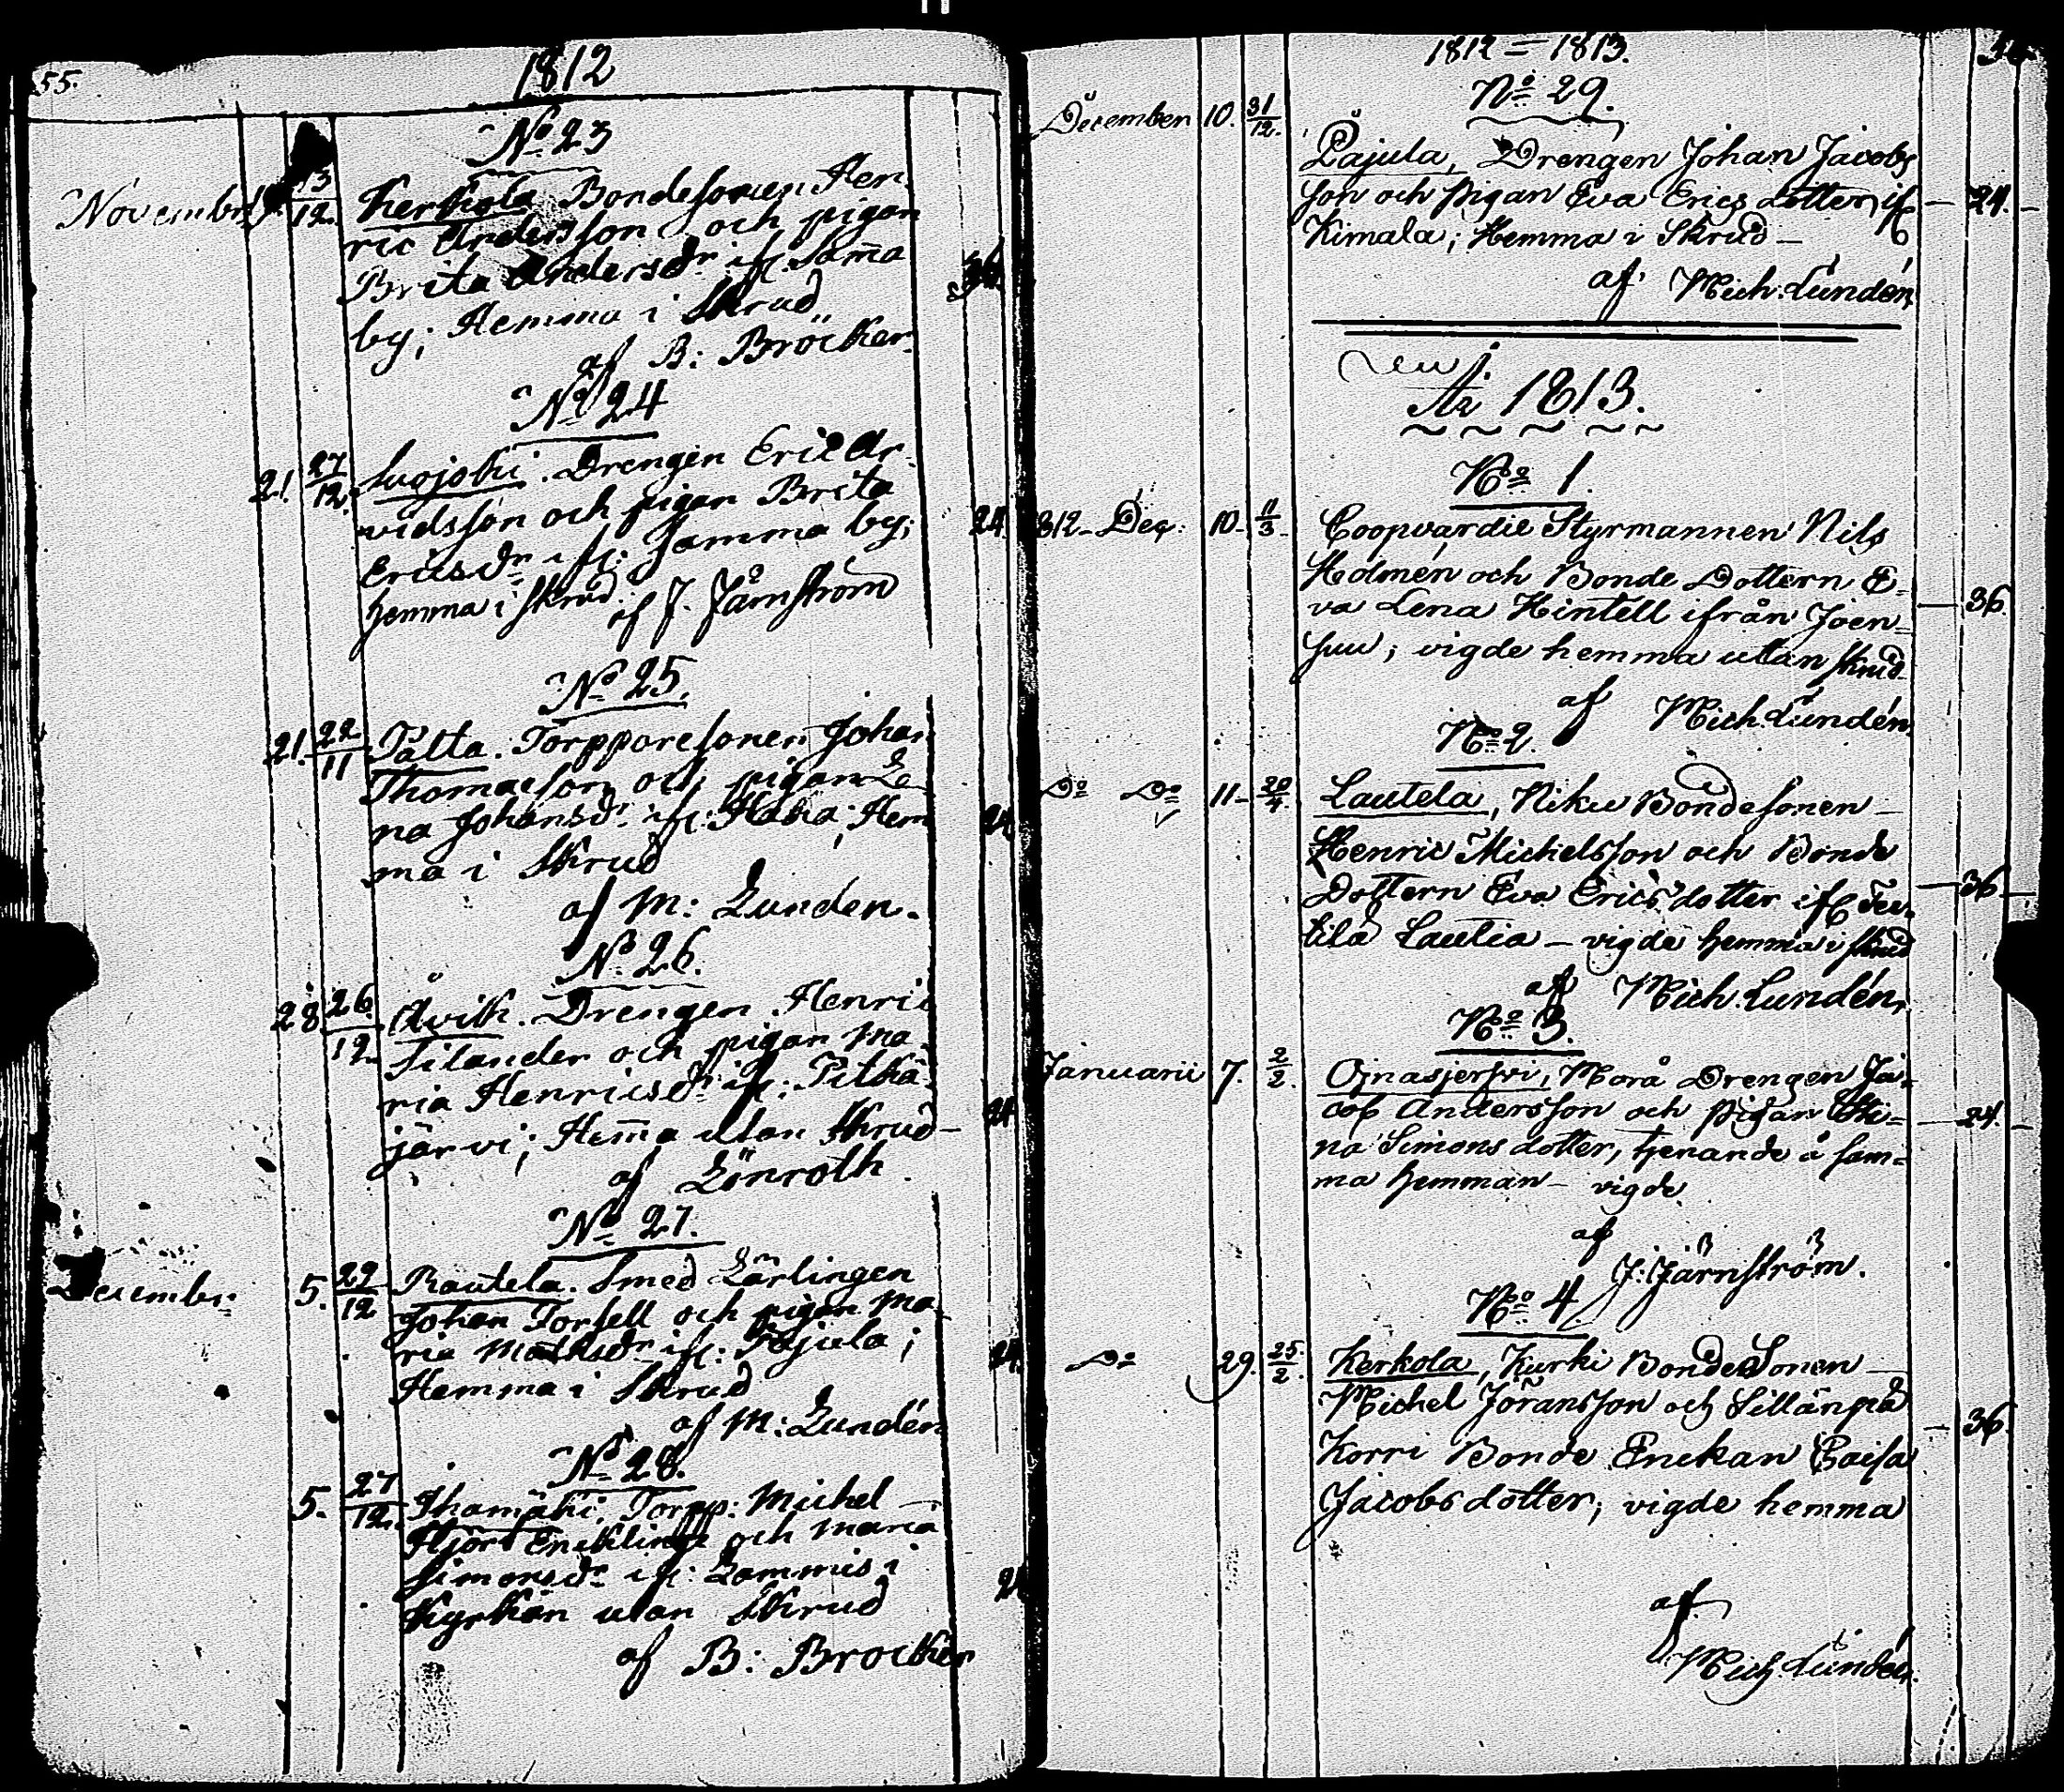 55.
1812
No 23
November 13/12 Kerkola Bondesonen Hen
ric Andersson och pigan
Brita Andersdr if: Samma 36.
by; Hemma i Skrud
af B: Bröcker.
No 24
21. 27/12. Suojoki. Drengen Eric Ar
vidsson och pigan Brita
Ericsdr if: Samma by; 24.
hemma i Skrud.
af J. Järnström
No 25.
21. 22/11 Palta. Torpparesonen Johan
Thomasson och pigan Le
na Johansdr if: ; Hem 24
ma i Skrud
af M: Lunden.
No 26.
28 26/12 Åvik. Drengen Henric
Silander och pigan Ma
ria Henricsdr if: Pitkä
järvi; Hemma utan Skrud – 24
af Lönroth.
No 27.
December 5. 29/12 Rautela. Smed Lärlingen
Johan Forsell och pigan Ma
ria Mattsdr if: Pajula; 24
Hemma i Skrud
af M: Lundén
No 28.
5. 27/12. Torpp: Michel –
Hjort Encklinge och Maria
Simonsdr if: Lammis i
Kyrkan utan Skrud
af B: Bröcker
1812 – 1813.
No 29.
December 10. 31/12. Pajula, Drengen Johan Jacobs
son och pigan Eva Erics dotter if – 24. –
Kimala; Hemma i Skrud –
af Mich. Lundén
År 1813.
No 1.
812 – Dec: 10 – 11/3 – Coopvardie Styrmannen Nils
Holmén och Bonde Dottern E-
va Lena Hintell ifrån Joen- – 36.
suu; vigde hemma utan skrud
af Mich. Lundén.
No 2.
Do Do 11 – 20/4. Lautela, Niku Bondesonen –
Henric Michelsson och Bonde
Dottern Eva Erics dotter if – 36. –
tila Lautia – vigde hemma i skrud
af Mich. Lundén,
No 3.
Januarii 7. 2/2. Ojnasjerfvi, Morå Drengen Ja-
cob Andersson och pigan Sti- – 24. –
na Simons dotter, tjenande å sam-
ma hemman – vigde
af
J: Järnström.
No 4.
Do 29. 25/2. Kerkola, Kurki BondeSonen –
Michel Jöransson och Sillänpä
Korri Bonde Enckan Caisa – 36.
Jacobs dotter; vigde hemma
af
Mich. Lundén.